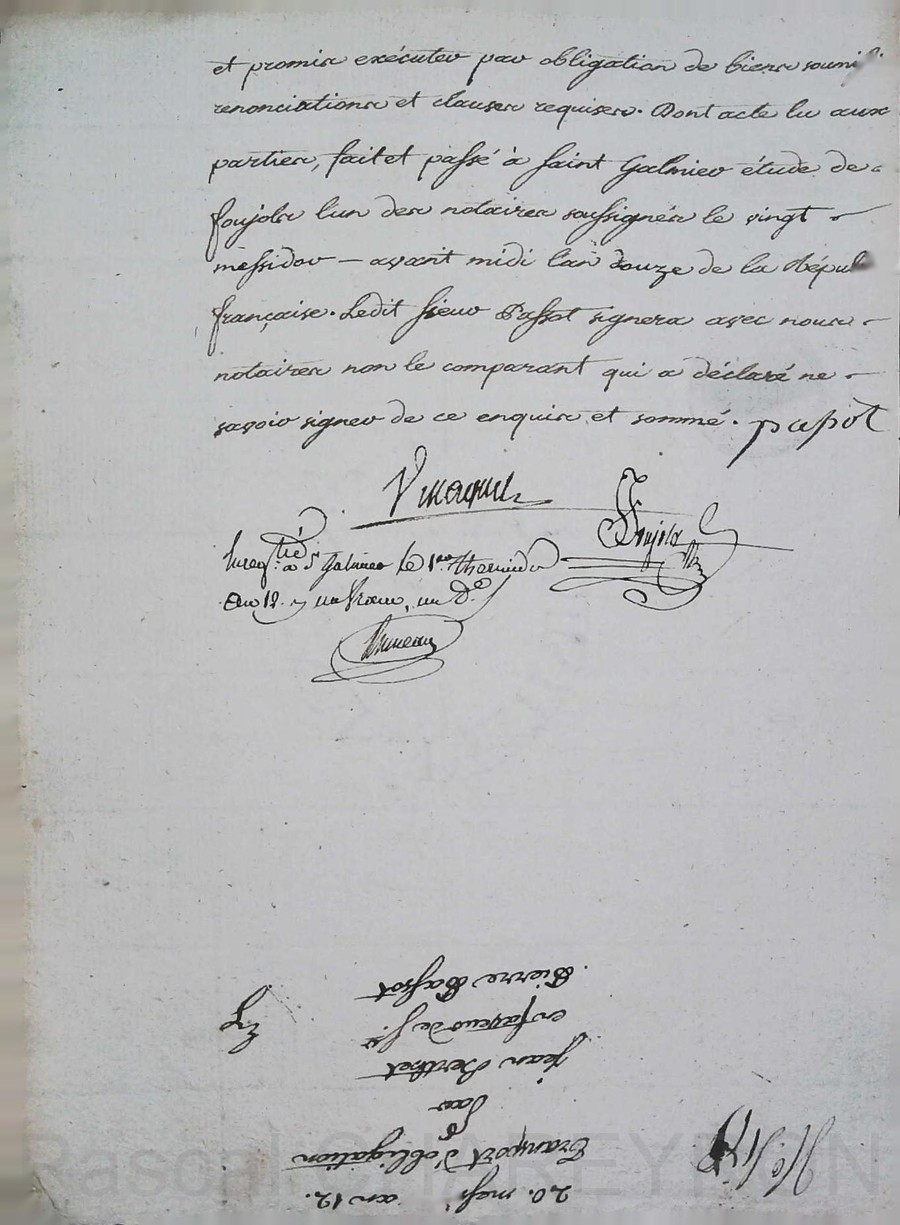 et promis exécuter par obligation de biens soumi
renonciations et clauses requises. Dont acte lu aux
parties, fait et passé à Saint Galmier étude de
foujols l'un des notaires soussignés le vingt
messidor — avant midi l'an douze de la Répub
française. Ledit sieur Passot signera avec nous
notaires non le comparant qui a déclaré ne
savoir signer de ce enquis et sommé. passot
foujols
Enregtré à St Galmier le 1er thermidor
an 12. un franc, un De.
20. messr an 12.
Transport d'obligation
Par
jean Berthet
en faveur de Sr
Pierre Passot